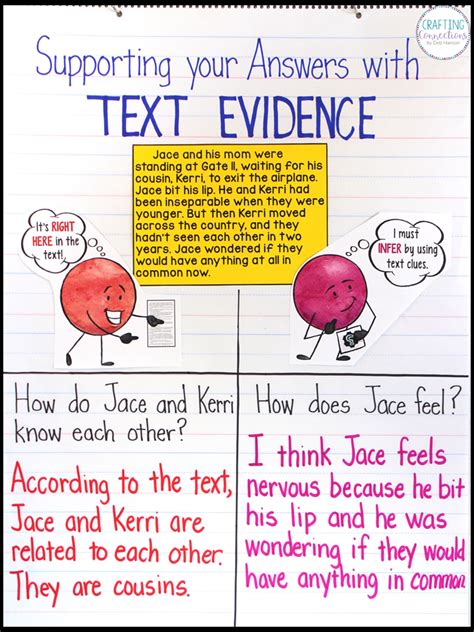 CRAFTING
Connections
by Deb Hanson
Supporting your Answers with
TEXT EVIDENCE
Jace and his mom were
standing at Gate 11, waiting for his
cousin, Kerri, to exit the airplane.
Jace bit his lip. He and Kerri had
been inseparable when they were
younger. But then Kerri moved
across the country, and they
hadn't seen each other in two
years. Jace wondered if they
would have anything at all in
common now.
It's RIGHT
HERE in the
text!
I must
INFER by using
text clues.
How do Jace and Kerri
know each other?
According to the text,
Jace and Kerri are
related to each other.
They are cousins.
How does Jace feel?
I think Jace feels
nervous because he bit
his lip and he was
wondering if they would
have anything in common.